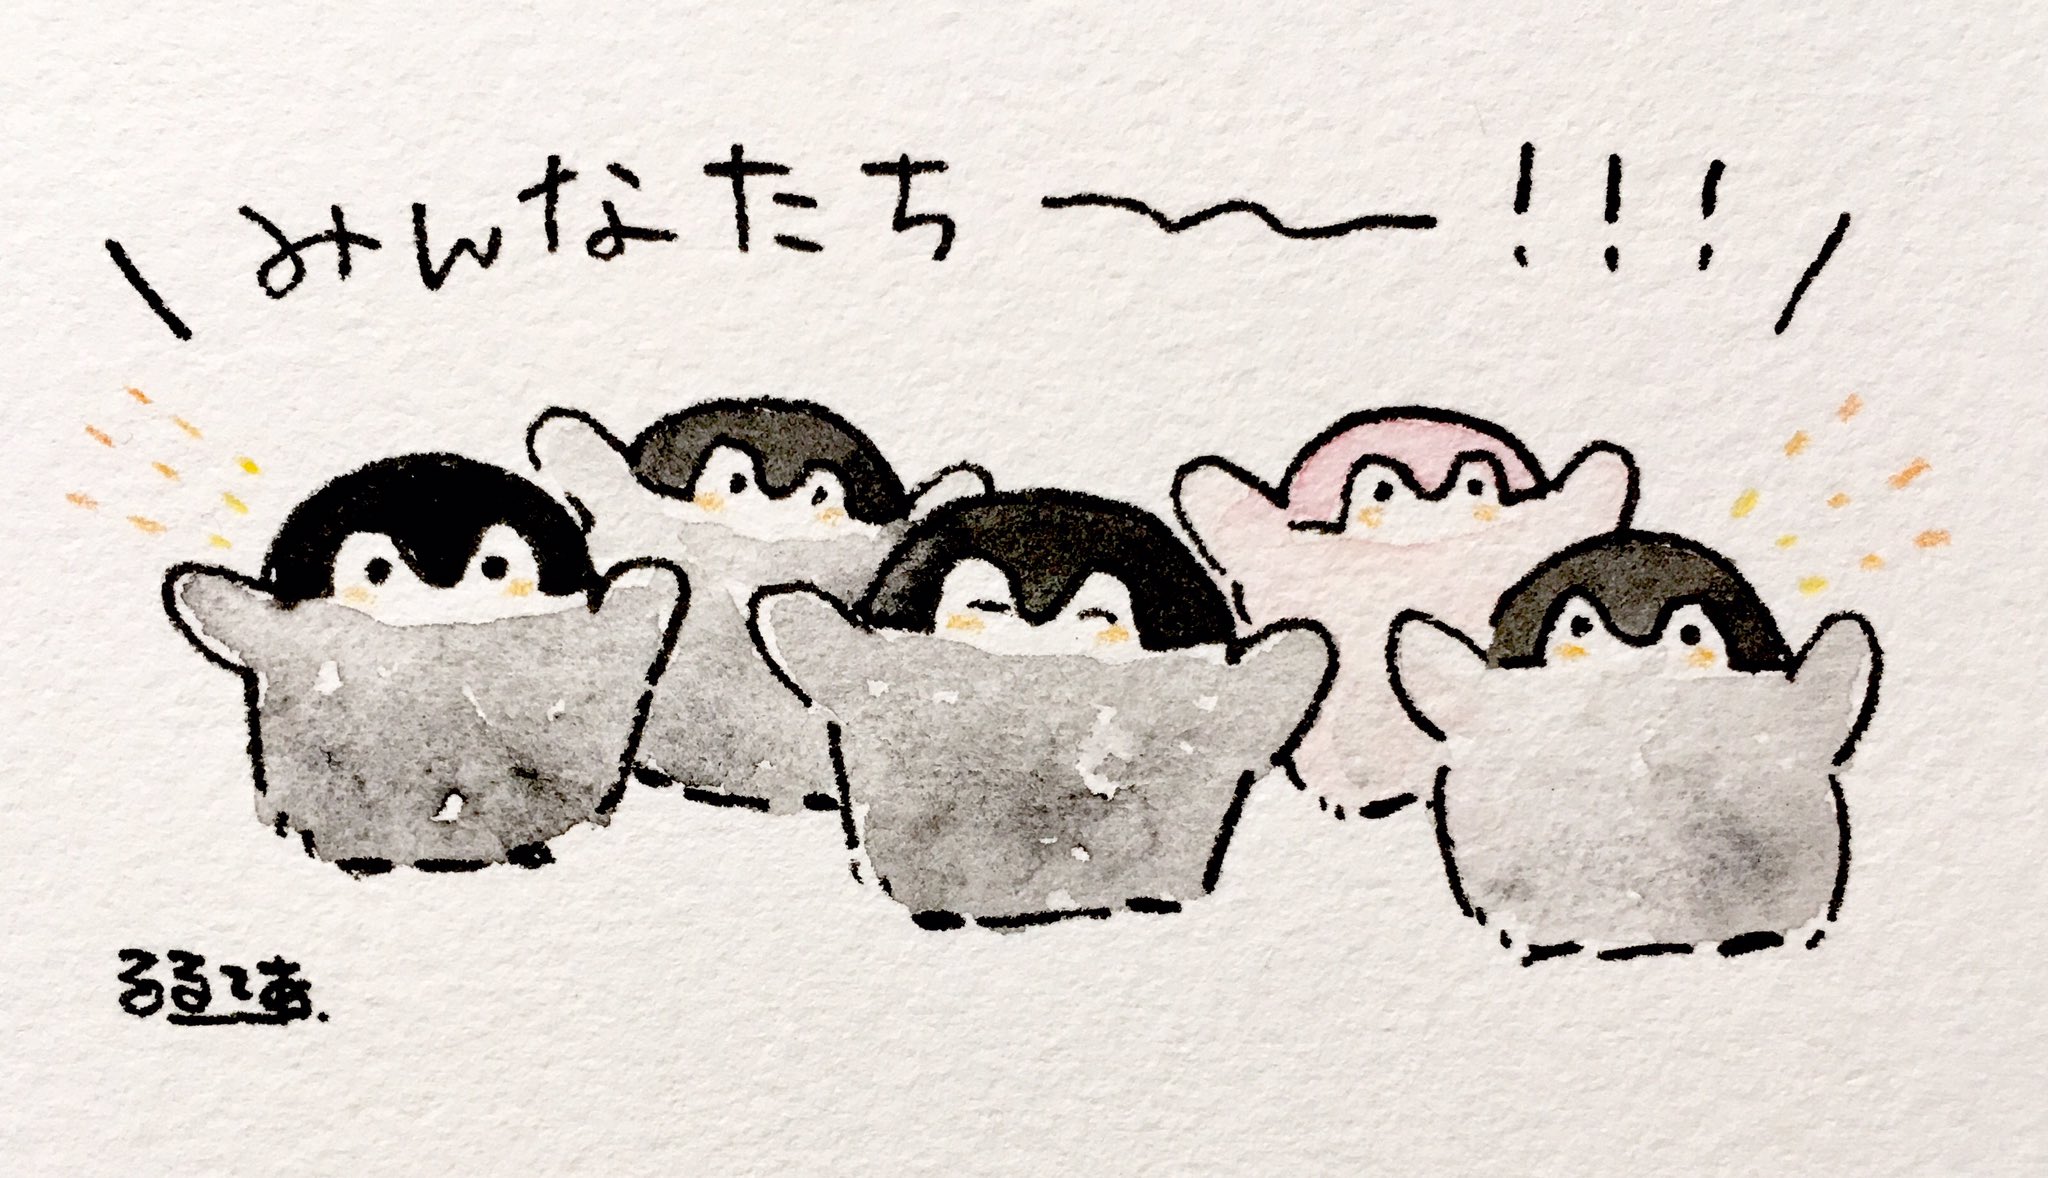 \ みんなたち〜〜!!! /
るるてあ.